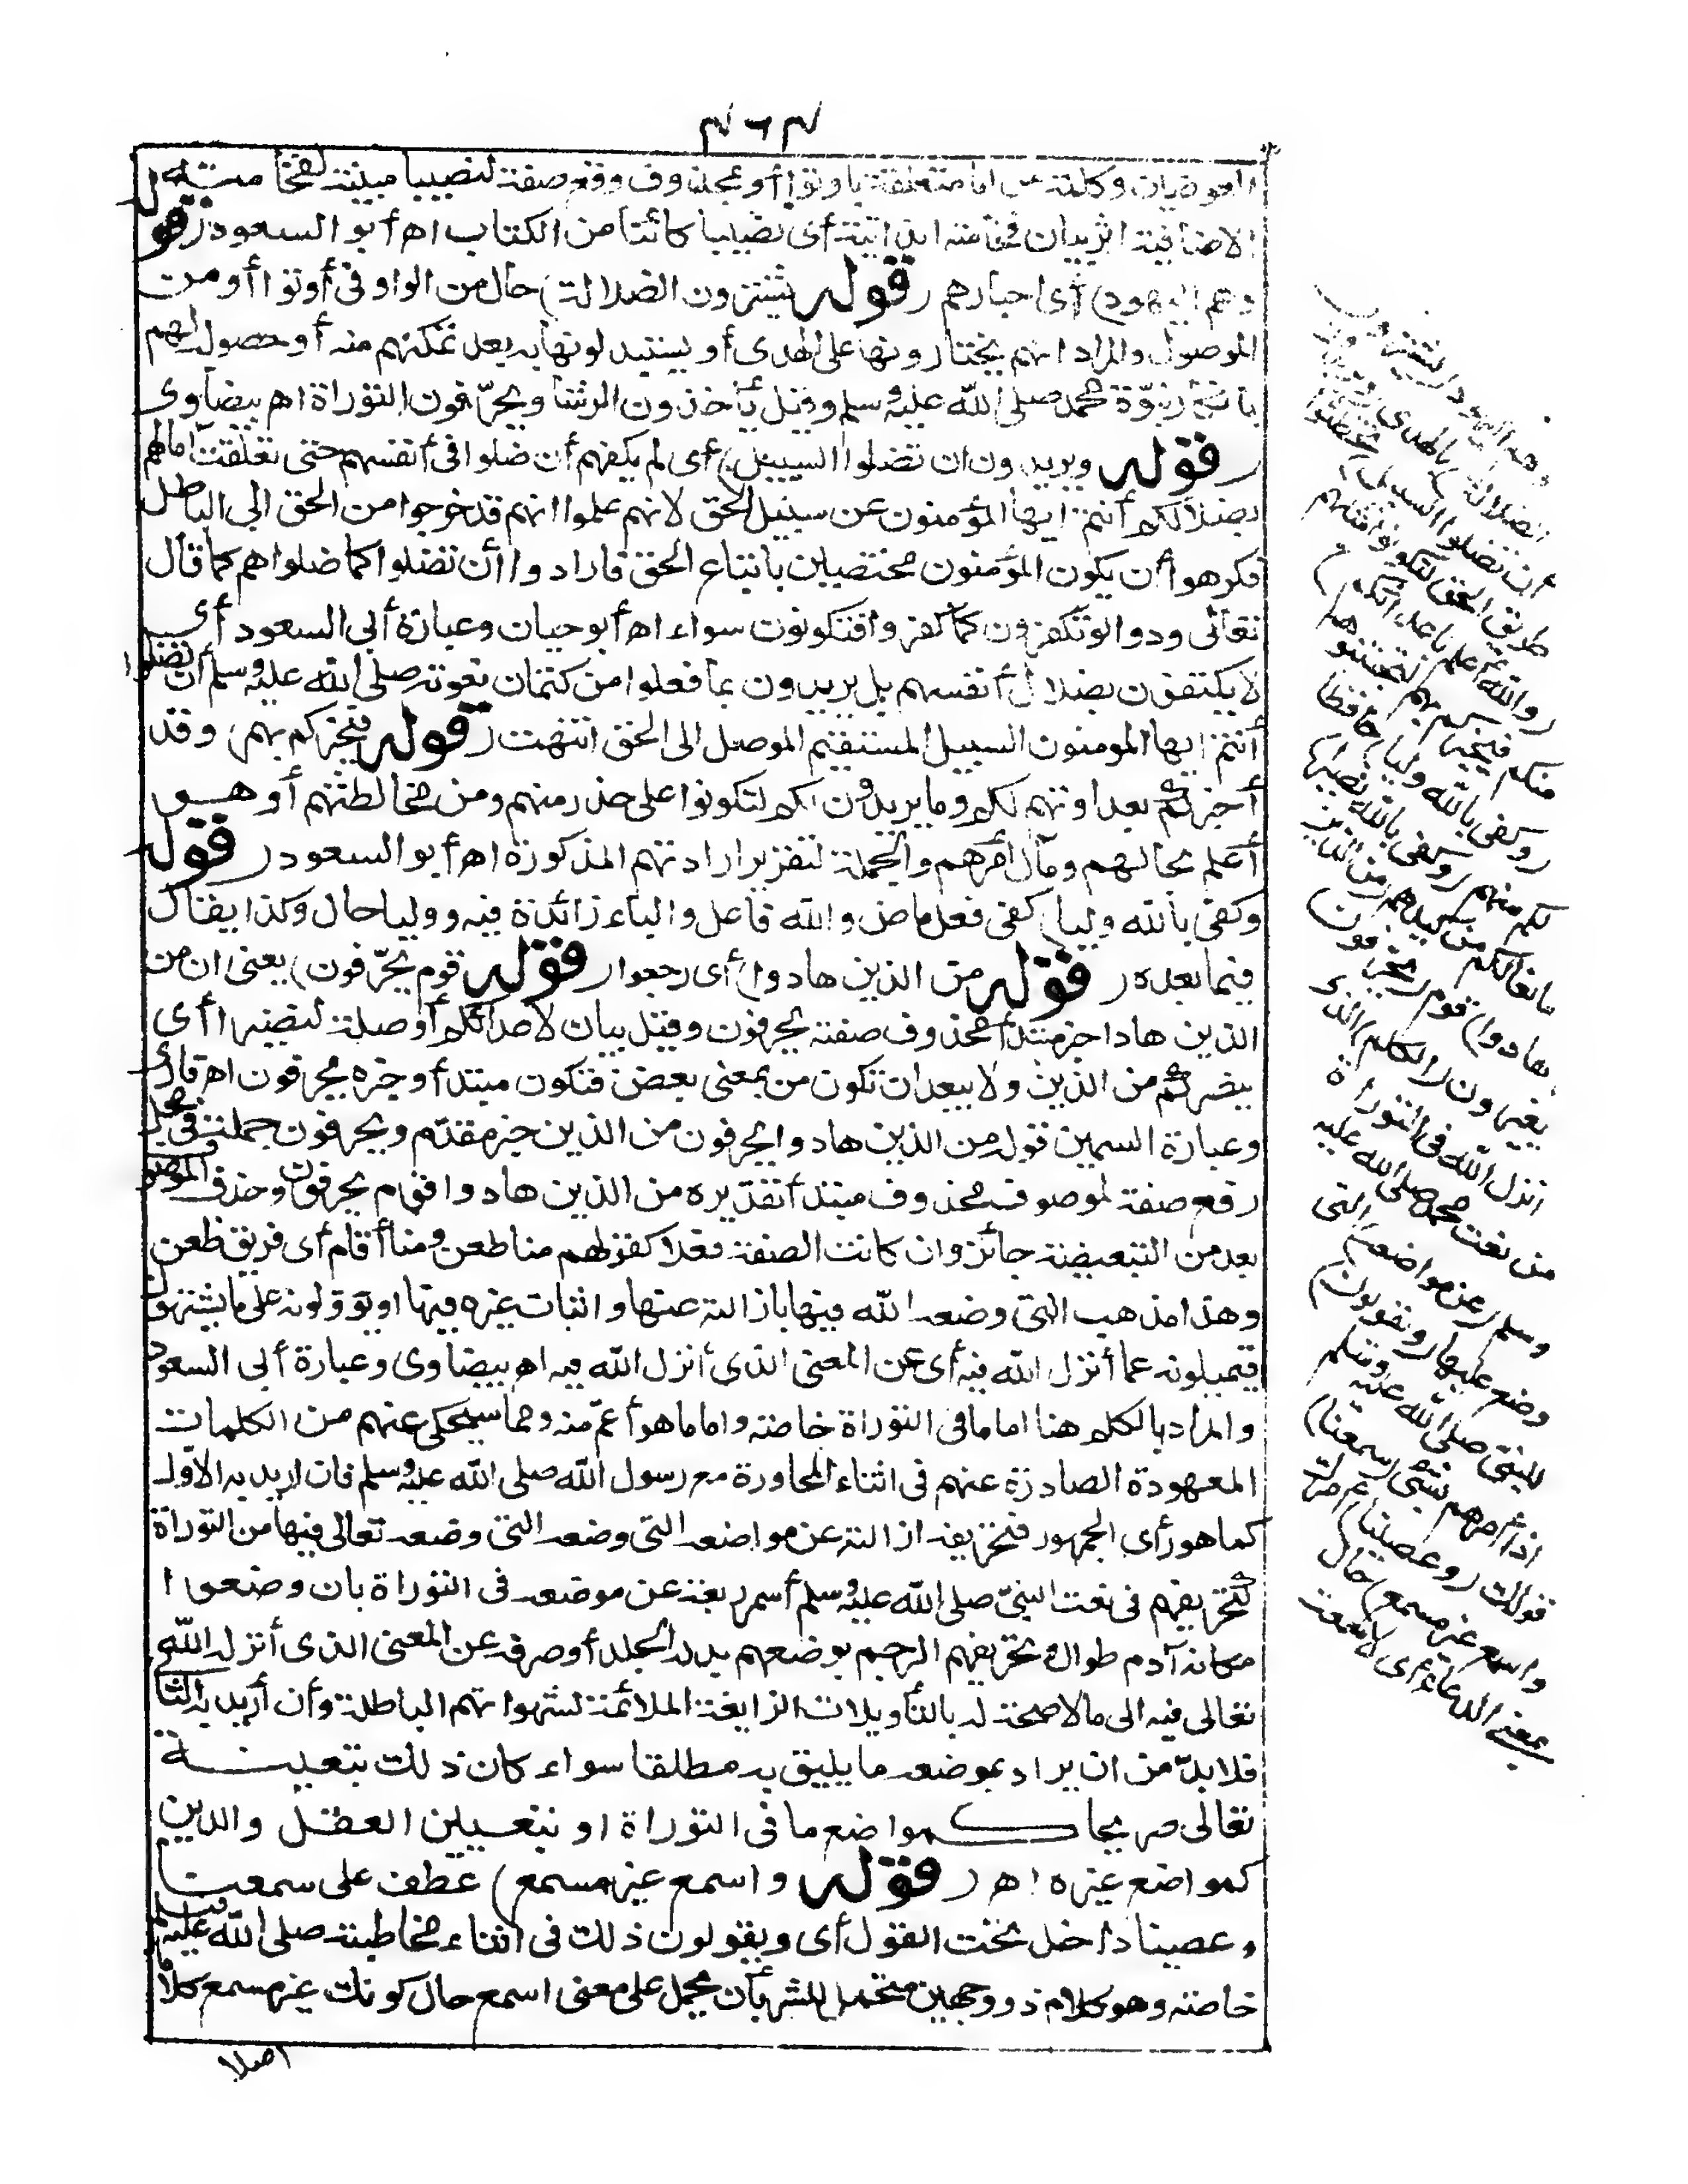 ٣٦٣
العوضيان وكلمة من اما متعلقة باوتوا أو بمحذوف وقع صفة لنصيبا مبينة لفخامته
الاضافية اثر بيان فخامته الذاتية أى نصيبا كائنا من الكتاب اه أبو السعود (قوله
وهم اليهود) أى احبارهم (قوله يشترون الضلالة) حال من الواو فى أوتوا أو من
الموصول والمراد انهم يختارونها على الهدى أو يستبدلونها به بعد تمكنهم منه أو حصوله لهم
بانكار نبوّة محمد صلى الله عليه وسلم وقيل يأخذون الرشا ويحرّفون التوراة اه بيضاوى
(قوله ويريدون ان تضلوا السبيل) أى لم يكفهم أن ضلوا فى أنفسهم حتى تعلقت آمالهم
بضلالكم أنتم ايها المؤمنون عن سبيل الحق لانهم علموا انهم قد خرجوا من الحق الى الباطل
فكرهوا أن يكون المؤمنون مختصين باتباع الحق فارادوا أن تضلوا كما ضلوا هم كما قال
تعالى ودوا لو تكفرون كما كفروا فتكونون سواء اه أبو حيان وعبارة أبى السعود أى
لا يكتفون بضلال أنفسهم بل يريدون بما فعلوا من كتمان نعوته صلى الله عليه وسلم أن تضلوا
أنتم ايها المومنون السبيل المستقيم الموصل الى الحق انتهت (قوله فيخبركم بهم) وقد
أخبركم بعداوتهم لكم وما يريدون لكم لتكونوا على حذر منهم ومن مخالطتهم أو هو
أعلم بحالهم ومآل أمرهم والجملة لتقرير ارادتهم المذكورة اه أبو السعود (قوله
وكفى بالله وليا) كفى فعل ماض والله فاعل والباء زائدة فيه ووليا حال وكذا يقال
فيما بعده (قوله من الذين هادوا) أى رجعوا (قوله قوم يحرّفون) يعنى ان من
الذين هادا خبر مبتدأ محذوف صفته يحرفون وقيل بيان لاعدائكم أو صلة لنصيرا أى
ينصركم من الذين ولا يبعد ان تكون من بمعنى بعض فتكون مبتدأ وخبره يحرفون اه قارى
وعبارة السمين قوله من الذين هادوا يحرفون من الذين خبر مقدّم ويحرفون جملة فى محل
رفع صفة لموصوف محذوف مبتدأ تقديره من الذين هادوا قوم يحرفون وحذف الموصوف
بعد من التبعيضية جائز وان كانت الصفة فعلا كقولهم منا ظعن ومنا أقام أى فريق ظعن
وهذا مذهب التى وضعه الله فيها بازالته عنها واثبات غيره فيها او يؤولونه على ما يشتهون
فيميلونه عما أنزل الله فيه أى عن المعنى الذى أنزل الله فيه اه بيضاوى وعبارة أبى السعود
والمراد بالكلم هنا اما ما فى التوراة خاصة واما ما هو أعمّ منه ومما سيحكى عنهم من الكلمات
المعهودة الصادرة عنهم فى اثناء المحاورة مع رسول الله صلى الله عليه وسلم فان اريد به الاوّل
كما هو رأى الجمهور فتحريفه ازالته عن مواضعه التى وضعه التى وضعه تعالى فيها من التوراة
كتحريفهم فى نعت النبىّ صلى الله عليه وسلم أسمر ربعة عن موضعه فى التوراة بان وضعوا
مكانه آدم طوال وتحريفهم الرجم بوضعهم بدله الجلد أو صرفه عن المعنى الذى أنزله الله
تعالى فيه الى مالا صحة له بالتأويلات الزايغة الملائمة لشهواتهم الباطلة وأن أريد به الثا
فلا بدّ من ان يراد بموضعه ما يليق به مطلقا سواء كان ذلك بتعيينه
تعالى صريحا كمواضع ما فى التوراة او بتعيين العقل والدين
كمواضع غيره اه (قوله واسمع غير مسمع) عطف على سمعنا
وعصينا داخل تحت القول أى ويقولون ذلك فى اثناء مخاطبته صلى الله عليه وسلم
خاصة وهو كلام ذو وجهين متحمل للشر بأن يحمل على معنى اسمع حال كونك غير مسمع كلاما
اصلا
وهم اليهود (يشترون
الضلالة) بالهدى (ويريدون
أن تضلوا السبيل) تخطئوا
طريق الحق لتكونوا مثلهم
(والله أعلم باعدائكم)
منكم فيخبركم بهم لتجتنبوهم
(وكفى بالله وليا) حافظا
لكم منهم (وكفى بالله نصيرا)
مانعا لكم من كيدهم (من الذين
هادوا) قوم (يحرفون)
يغيرون (الكلم) الذى
انزل الله فى التوراة
من نعت محمد صلى الله عليه
وسلم (عن مواضعه) التى
وضع عليها (ويقولون)
للنبى صلى الله عليه وسلم
اذا أمرهم بشئ (سمعنا)
قولك (وعصينا) امرك
واسمع غير مسمع) حال
بمعنى الدعاء أى لا سمعت